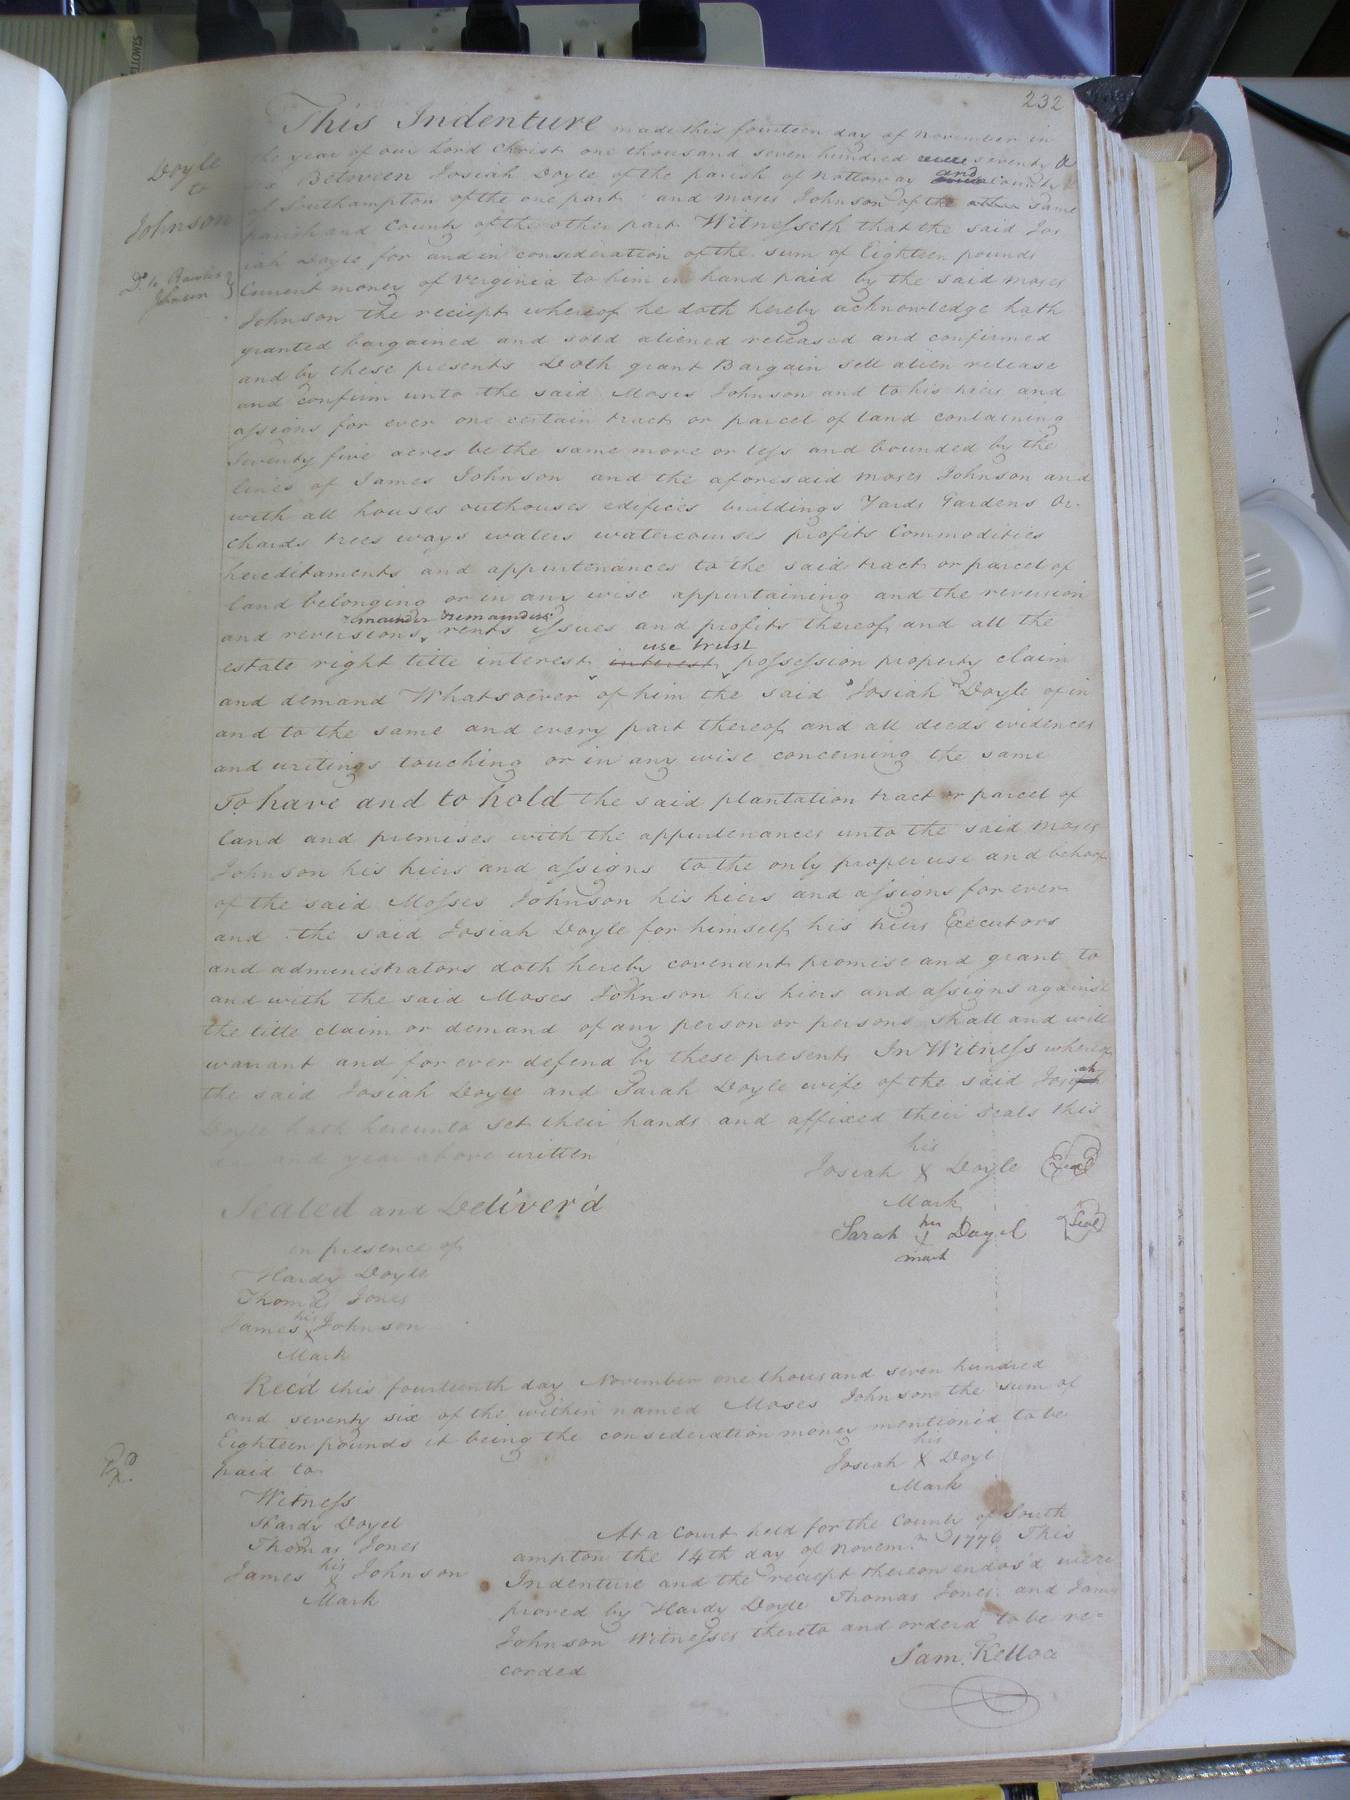 232
Doyle
to
Johnson
This Indenture made this fourteen day of November in
the year of our Lord Christ one thousand seven hundred seventy &
six Between Josiah Doyle of the parish of Nottoway and County
of Southampton of the one part and Moses Johnson of the other same
parish and County of the other part Witnesseth that the said Jos
iah Doyle for and in consideration of the sum of Eighteen pounds
Current money of Verginia to him in hand paid by the said Moses
Johnson the reciept whereof he doth hereby acknowledge hath
granted bargained and sold aliened released and confirmed
and by these presents Doth grant Bargain sell alien release
and confirm unto the said Moses Johnson and to his hiers and
assigns for ever one certain tract or parcel of land containing
seventy five acres be the same more or less and bounded by the
lines of James Johnson and the aforesaid Moses Johnson and
with all houses outhouses edifices buildings Yards Gardens Or-
chards trees ways waters watercourses profits Commodities
hereditaments and appurtenances to the said tract or parcel of
land belonging or in any wise appurtaining and the reversion
mainder remainders
and reversions rents issues and profits thereof and all the
use trust
estate right title interest interest possession property claim
and demand Whatsoever of him the said Josiah Doyle of in
and to the same and every part thereof and all deeds evidences
and writings touching or in any wise concerning the same
To have and to hold the said plantation tract or parcel of
land and premises with the appurtenances unto the said Moses
Johnson his hiers and assigns to the only proper use and behoof
of the said Mosses Johnson his hiers and assigns for ever
and the said Josiah Doyle for himself his hiers Executors
and administrators doth hereby covenant promise and grant to
and with the said Moses Johnson his hiers and assigns against
the title claim or demand of any person or persons shall and will
warrant and for ever defend by these presents In Witness whereof
the said Josiah Doyle and Sarah Doyle wife of the said Josiah
Doyle hath hereunto set their hands and affixed their seals this
day and year above written
his
Josiah X Doyle Seal
Mark
Sealed and Deliver'd
Sarah her Doyel Seal
mark
in presence of
Hardy Doyle
Thomas Jones
James his X Johnson
Mark
Recd this fourteenth day November one thousand seven hundred
and seventy six of the within named Moses Johnson the sum of
Eighteen pounds it being the consideration money mention'd to be
paid to
his
Josiah X Doyl
Mark
Witness
Hardy Doyel
Thomas Jones
James his X Johnson
Mark
At a Court held for the County of South
ampton the 14th day of Novemr. 1776 This
Indenture and the reciept thereon endos'd were
proved by Hardy Doyle Thomas Jones and James
Johnson Witnesses thereto and orderd to be re=
corded
Sam. Kelloa